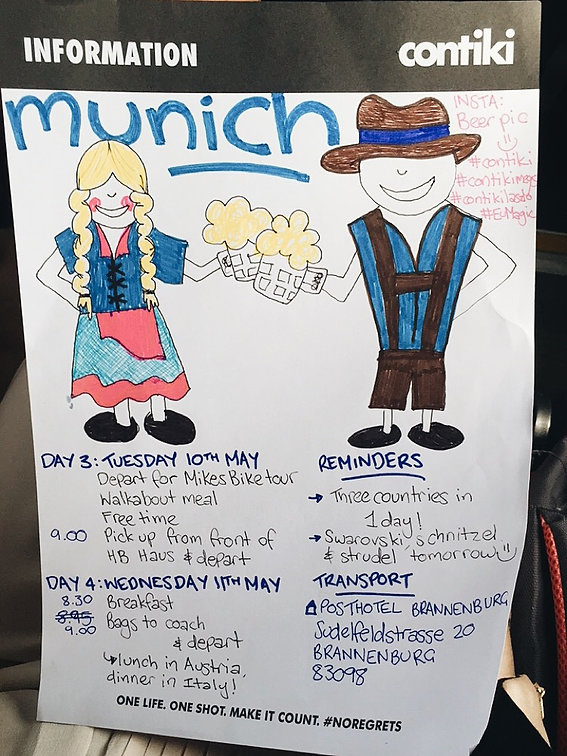 INFORMATION
contiki
munich
INSTA:
Beer pic
#contiki
#contikimegs
#EuMagic
DAY 3: TUESDAY 10TH MAY
Depart for Mikes Bike tour
Walkabout meal
Free time
9.00 Pick up from front of
HB Haus & depart
DAY 4: WEDNESDAY 11TH MAY
8.30 Breakfast
8.45
9.00 Bags to coach
& depart
↳ lunch in Austria,
dinner in Italy!
REMINDERS
→ Three countries in
1 day!
→ Swarovski schnitzel
& strudel tomorrow
TRANSPORT
POSTHOTEL BRANNENBURG
Sudelfeldstrasse 20
BRANNENBURG
83098
ONE LIFE. ONE SHOT. MAKE IT COUNT. #NOREGRETS